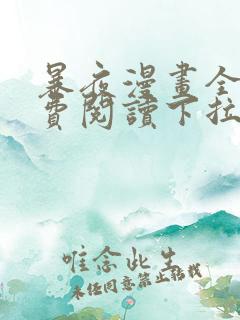 暴夜漫畫全
費閱讀下拉
唯念此生
未经同意禁止搬我